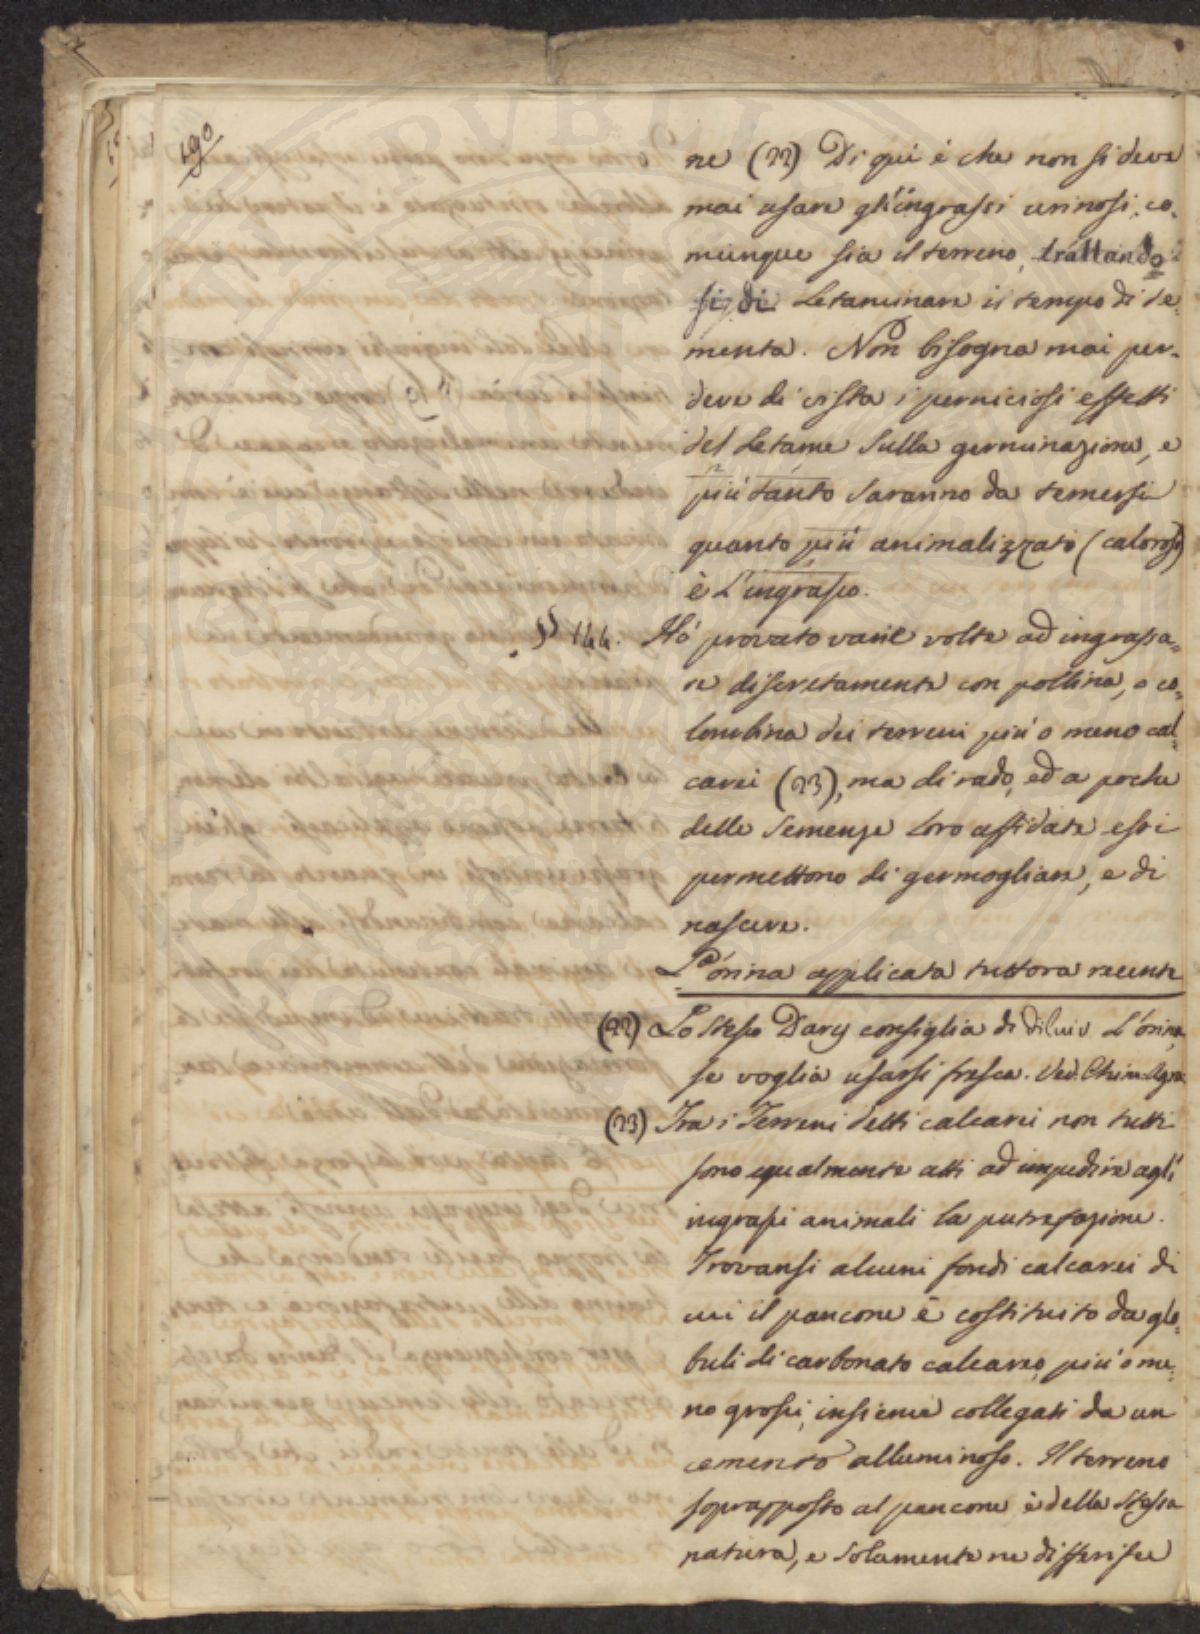 190
ne (22) Di qui è che non si deve
mai usare gl'ingrassi urinosi, co-
munque sia il terreno, trattando
si di Letaminare in tempo di se
menta. Non bisogna mai per-
dere di vista i perniciosi effetti
del Letame sulla germinazione, e
più tanto saranno da temersi
quanto più animalizzato (caloroso)
è L'ingrasso.
§ 144. Hò provato varie volte ad ingrassa-
re discretamente con pollina, o co-
lombina dei terreni più o meno cal
carei (23), ma di rado, ed a poche
delle semenze loro affidate essi
permettono di germogliare, e di
nascere.
L'orina applicata tuttora recente
(22) Lo stesso Davy consiglia di diluir L'orina,
se voglia usarsi fresca. Ved. Chim. Agra
(23) Tra i Terreni detti calcarei non tutti
sono egualmente atti ad impedire agl'
ingrassi animali la putrefazione.
Trovansi alcuni fondi calcarei di
cui il pancone è costituito da glo-
buli di carbonato calcareo, più o me-
no grossi, insieme collegati da un
cemento alluminoso. Il terreno
soprapposto al pancone è della stessa
natura, e solamente ne differisce